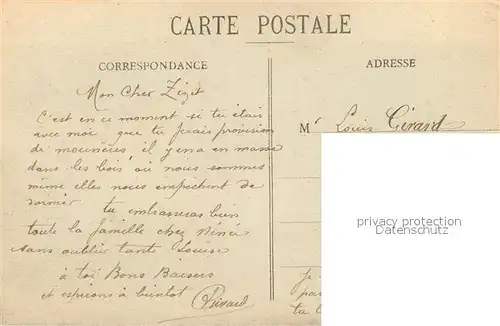 CARTE POSTALE
CORRESPONDANCE
ADRESSE
Mon Cher Zizit
C'est en ce moment si tu étais
avec moi que tu ferais provision
de mounères il y en a en masse
dans les bois où nous sommes
même elles nous empêchent de
dormir
tu embrasseras bien
toute la famille chez Ninie
sans oublier tante Louise
à toi Bons Baisers
et espérons à bientôt
Mr Louis Gérard
privacy protection
watermark
je
par
tu